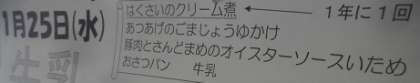 1月25日(水)
はくさいのクリーム煮 ← 1年に1回
あつあげのごまじょうゆかけ
豚肉とさんどまめのオイスターソースいため
おさつパン 牛乳
牛乳